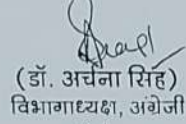 (डॉ. अर्चना सिंह)
विभागाध्यक्ष, अंग्रेजी